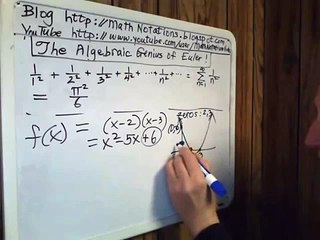 Blog http://MathNotations.blogspot.com
YouTube http://www.youtube.com/user/
The Algebraic Genius of Euler!
1/1² + 1/2² + 1/3² + 1/4² + ... + 1/n² + ... = ∑ n=1 ∞ 1/n²
= π²/6
f(x) = (x-2)(x-3)
= x²-5x+6
zeros: 2,3
(0,6)